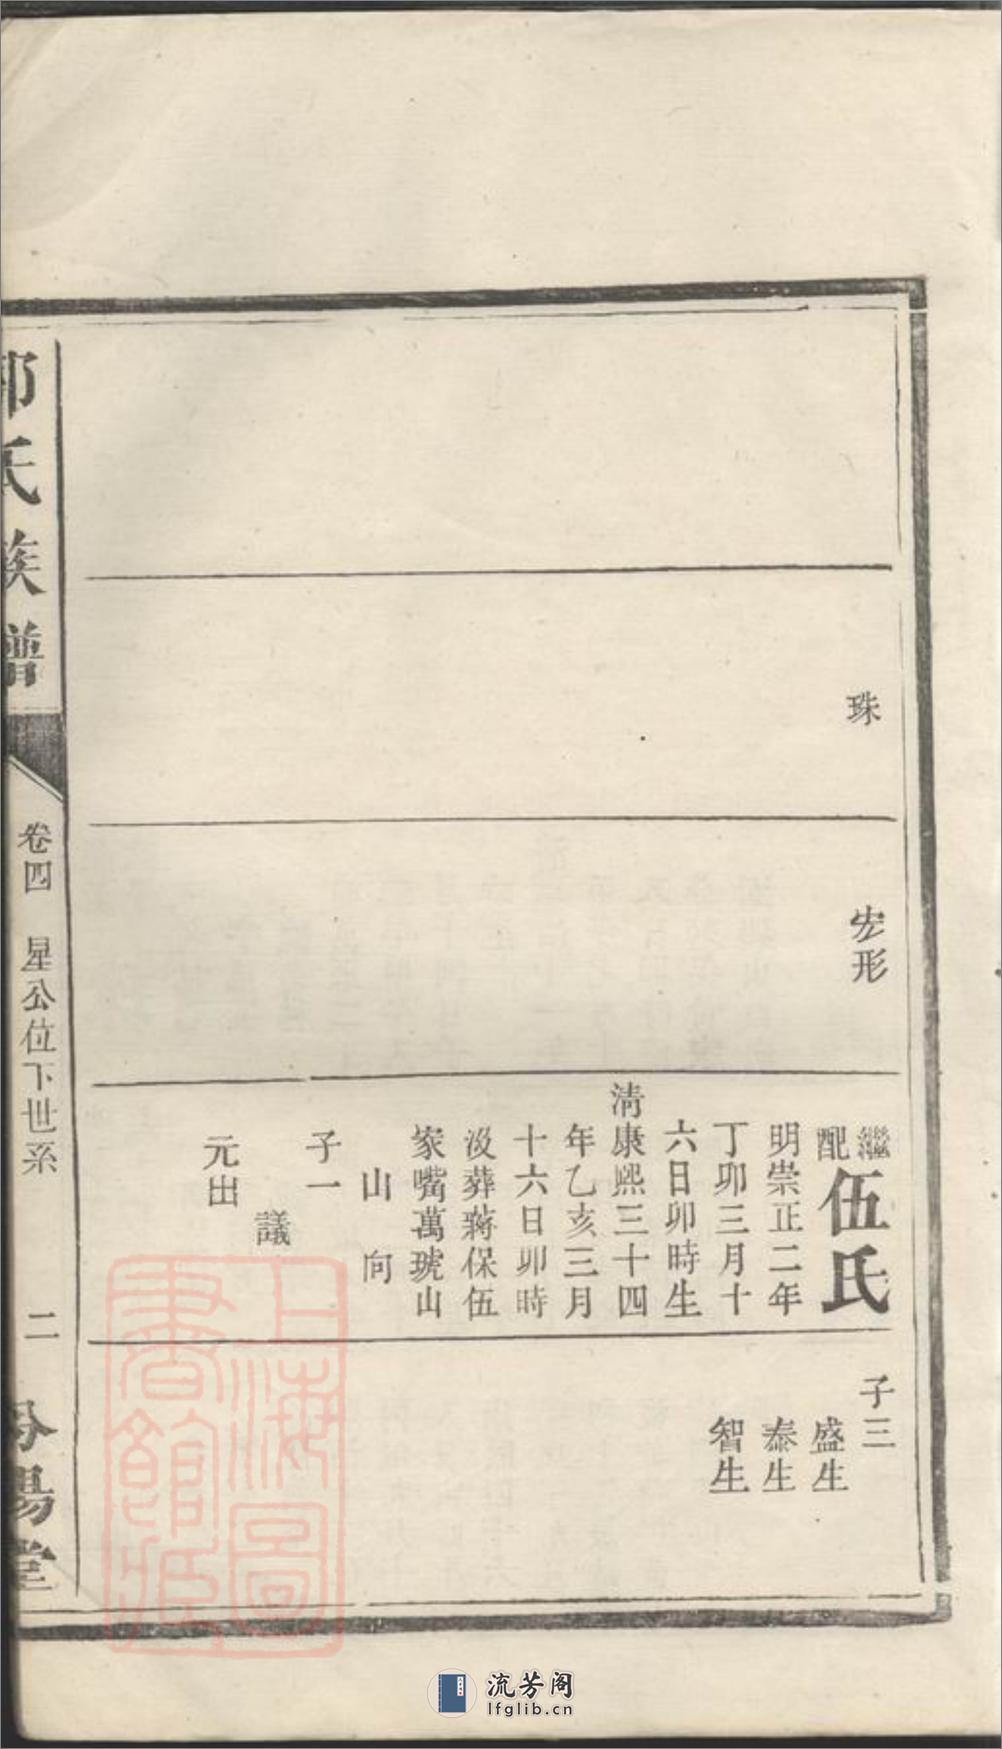 珠
宏形
繼配
伍氏
明崇正二年
丁卯三月十
六日卯時生
清康熙三十四
年乙亥三月
十六日卯時
没葬蔣保伍
家嘴萬琥山
山 向
子一
議
元出
子三
盛生
泰生
智生
氏族譜
卷四 星公位下世系 二
陽堂
上海圖書館藏
流芳阁
lfglib.cn